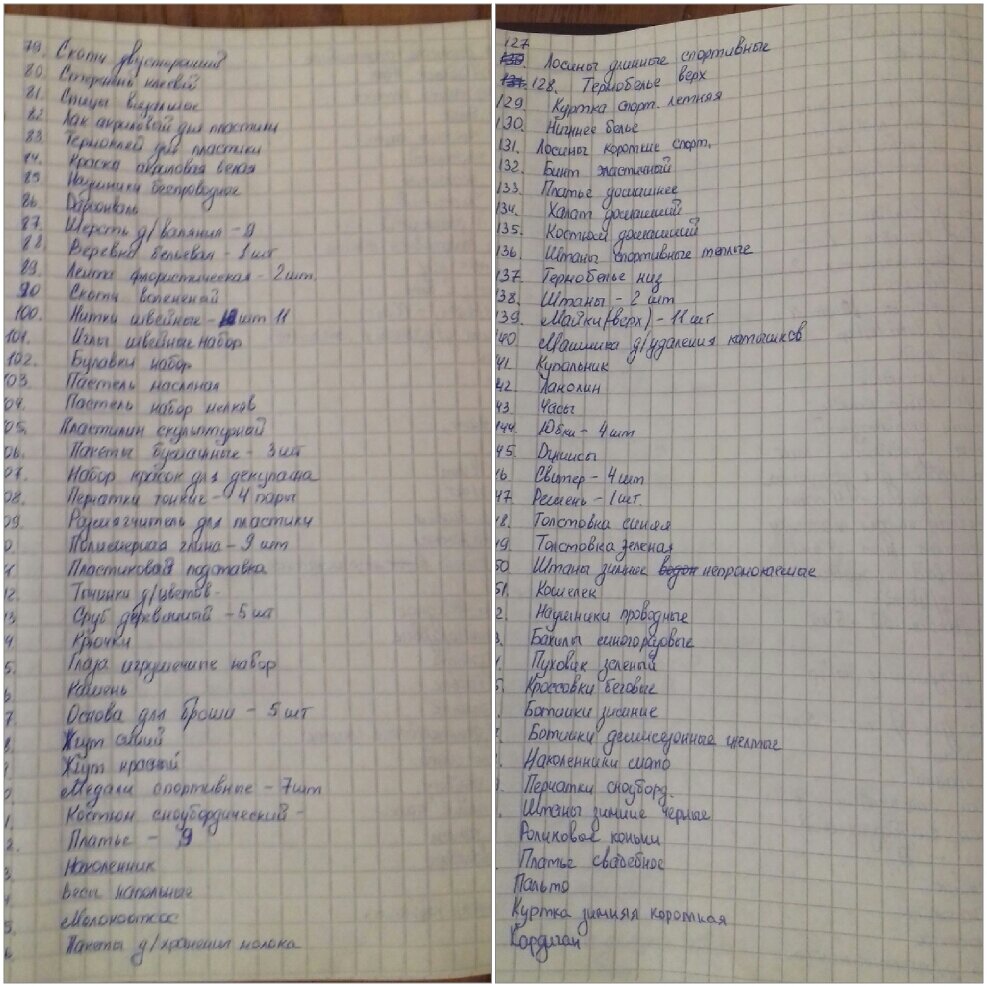 79. Скотч двусторонний
80. Стержни клеевой
81. Спицы вязальные
82 Лак акриловый для пластики
83. Термоклей для пластики
84. Краска акриловая белая
85 Наушники беспроводные
86 Дарсонваль
87. Шерсть д/валяния - 9
88 Веревка бельевая - 1 шт
89. Лента флористическая - 2 шт.
90 Скотч вспененый
100. Нитки швейные - шт 11
101. Иглы швейные набор
102. Булавки набор
03. Пастель масляная
04. Пастель набор мелков
05. Пластилин скульптурный
06. Пакеты бумажные - 3 шт
07. Набор красок для декупажа
08. Перчатки тонкие - 4 пары
09. Размягчитель для пластики
0. Полимерная глина - 9 шт
1. Пластиковая подставка
12. Тычинки д/цветов -
13 Сруб деревянный - 5 шт
4 Крючки
5. Глаза игрушечные набор
6. Камень
7. Основа для броши - 5 шт
8. Жгут синий
9. Жгут красный
0. Медали спортивные - 7 шт
1. Костюм сноубордический -
2. Платье - 9
3. Наколенник
4. Весы напольные
5. Молокоотсос
6 Пакеты д/хранения молока
127. Лосины длинные спортивные
128. Термобелье верх
129. Куртка спорт. летняя
130. Нижнее белье
131. Лосины короткие спорт.
132. Бинт эластичный
133. Платье домашнее
134. Халат домашний
135. Костюм домашний
136. Штаны спортивные теплые
137. Термобелье низ
138. Штаны - 2 шт
139. Майки (верх) - 11 шт
40 Машинка д/удаления катышков
41. Купальник
42. Ланолин
43. Часы
144. Юбки - 4 шт
45. Джинсы
6 Свитер - 4 шт
47. Ремень - 1 шт.
8. Толстовка синяя
49. Толстовка зеленая
50 Штаны зимние непромокаемые
51. Кошелек
2. Наушники проводные
3. Бахилы
Пуховик зеленый
5. Кроссовки беговые
Ботинки зимние
Ботинки демисезонные желтые
Наколенники
Перчатки сноуборд.
Штаны зимние черные
Роликовые коньки
Платье свадебное
Пальто
Куртка зимняя короткая
Кардиган